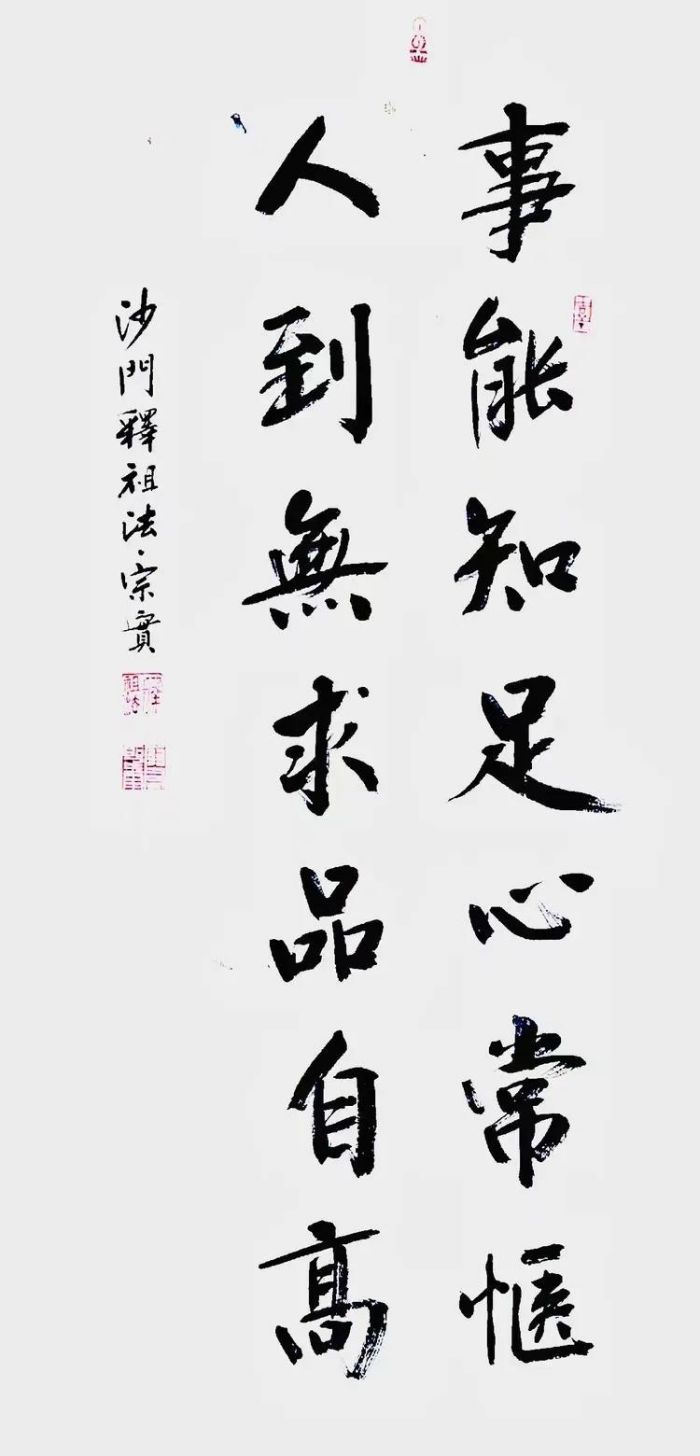 事能知足心常愜
人到無求品自高
沙門釋祖法·宗實